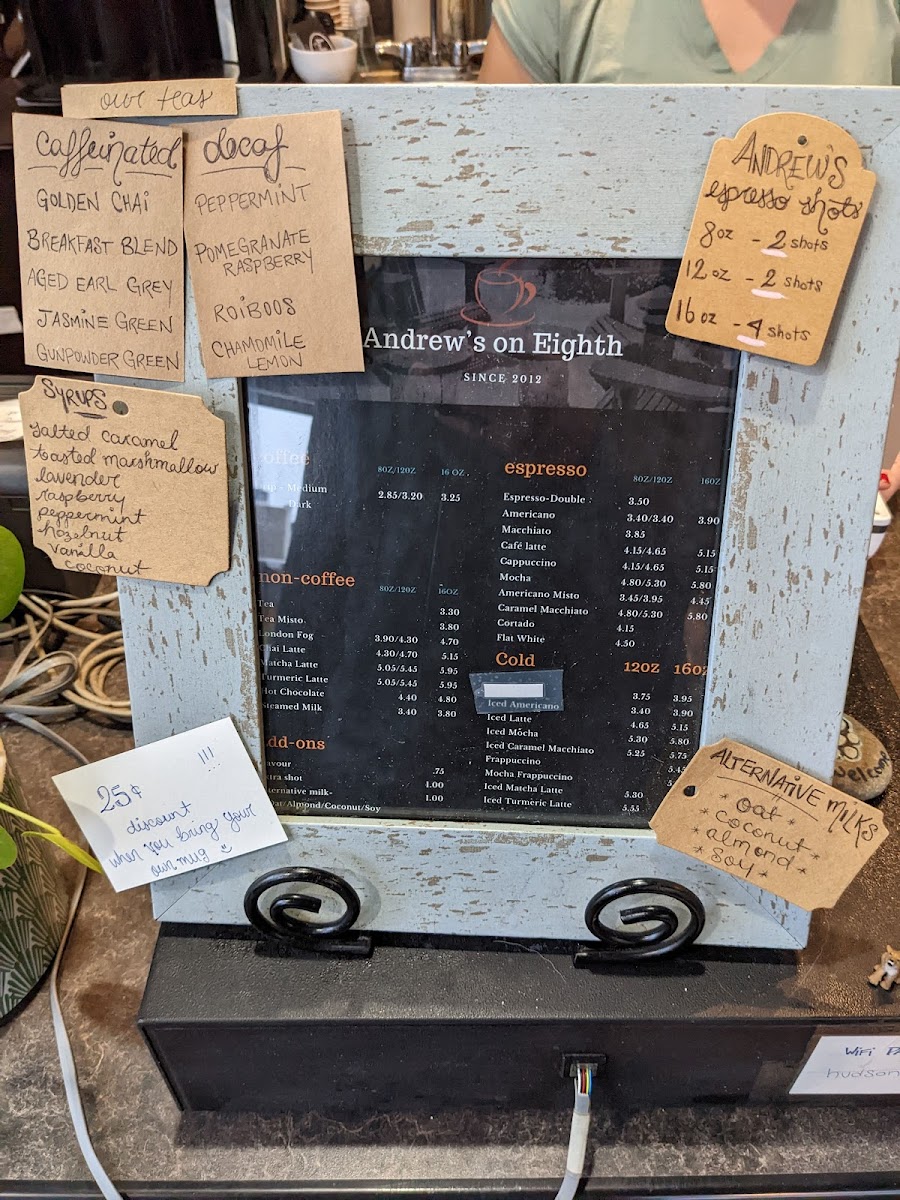 our teas
Caffeinated
GOLDEN CHAI
BREAKFAST BLEND
AGED EARL GREY
JASMINE GREEN
GUNPOWDER GREEN
decaf
PEPPERMINT
POMEGRANATE
RASPBERRY
ROIBOOS
CHAMOMILE
LEMON
ANDREW'S
espresso shots
8oz - 2 shots
12oz - 2 shots
16oz - 4 shots
SYRUPS
salted caramel
toasted marshmallow
lavender
raspberry
peppermint
hazelnut
vanilla
coconut
Andrew's on Eighth
SINCE 2012
coffee
8OZ/12OZ 16 OZ
- Medium 2.85/3.20 3.25
Dark
non-coffee
8OZ/12OZ 16OZ
Tea 3.30
Tea Misto 3.80
London Fog 3.90/4.30 4.70
Chai Latte 4.30/4.70 5.15
Matcha Latte 5.05/5.45 5.95
Turmeric Latte 5.05/5.45 5.95
Hot Chocolate 4.40 4.80
Steamed Milk 3.40 3.80
Add-ons
Flavour .75
Extra shot 1.00
Alternative milk- 1.00
Oat/Almond/Coconut/Soy
espresso
8OZ/12OZ 16OZ
Espresso-Double 3.50
Americano 3.40/3.40 3.90
Macchiato 3.85
Café latte 4.15/4.65 5.15
Cappuccino 4.15/4.65 5.15
Mocha 4.80/5.30 5.80
Americano Misto 3.45/3.95 4.45
Caramel Macchiato 4.80/5.30 5.80
Cortado 4.15
Flat White 4.50
Cold 12OZ 16OZ
3.75 3.95
Iced Americano 3.40 3.90
Iced Latte 4.65 5.15
Iced Mocha 5.30 5.80
Iced Caramel Macchiato 5.25 5.75
Frappuccino 5.45
Mocha Frappuccino
Iced Matcha Latte 5.30
Iced Turmeric Latte 5.55
25¢ !!!
discount
when you bring your
own mug
ALTERNATIVE MILKS
* oat *
* coconut *
* almond *
* soy *
welcome
WiFi
hudson